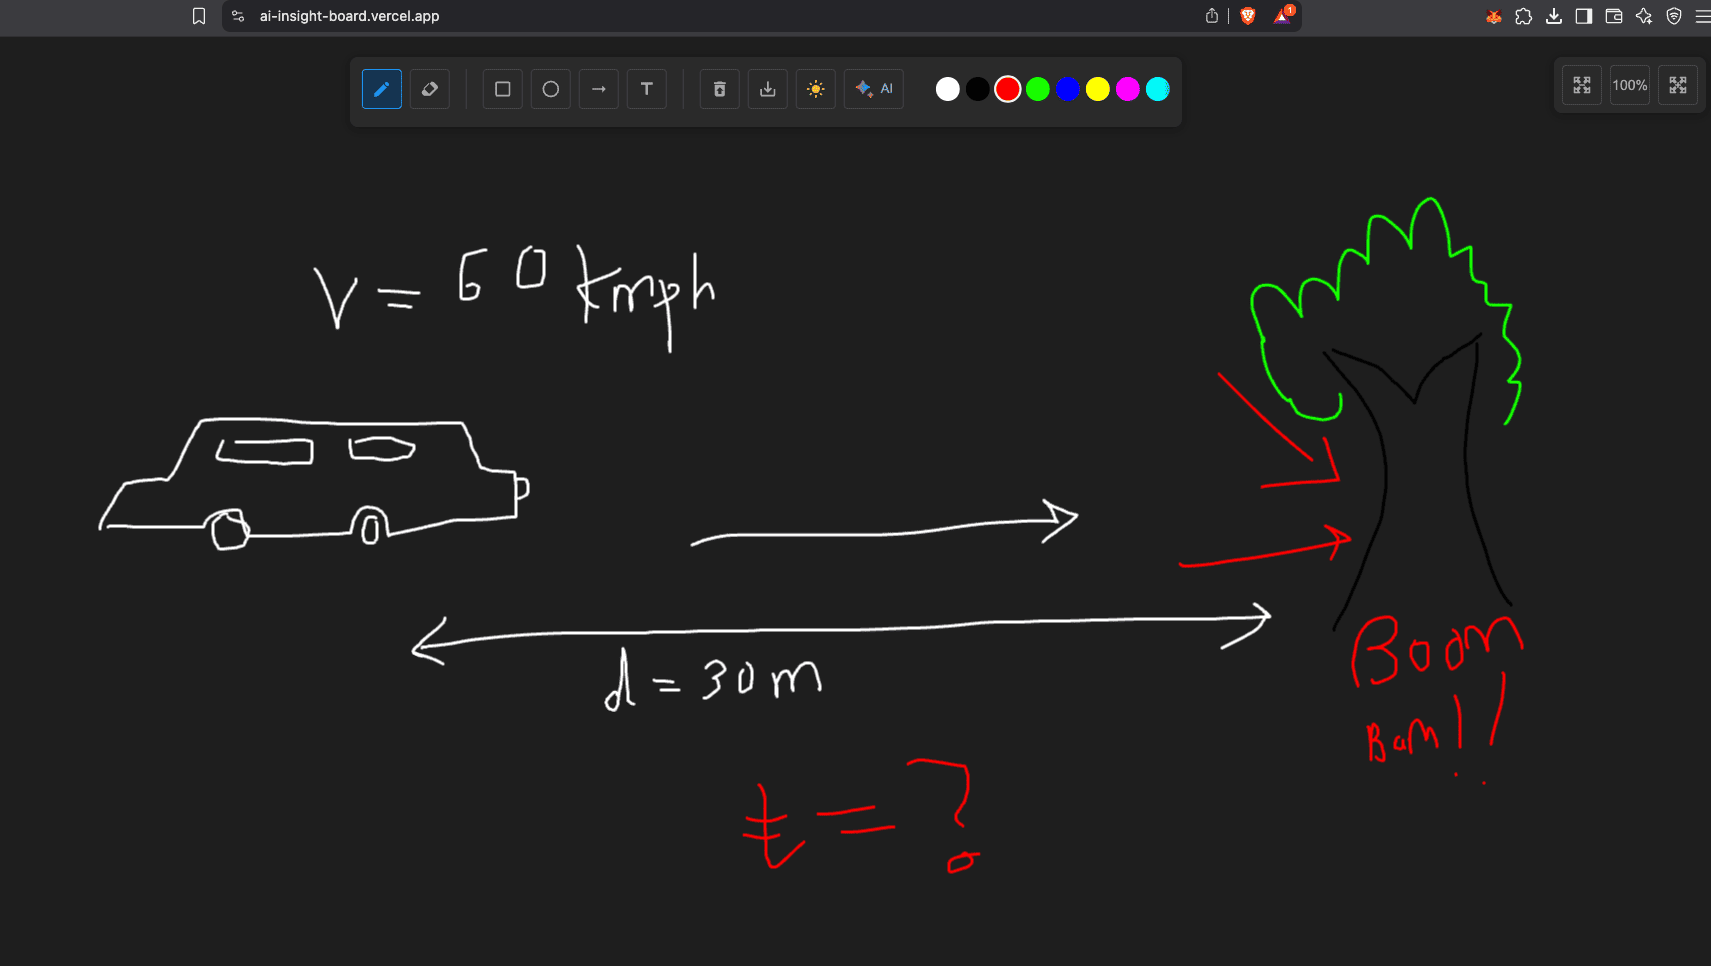 ai-insight-board.vercel.app
1
T
AI
100%
V = 60 kmph
d = 30 m
t = ?
Boom
Bam!!